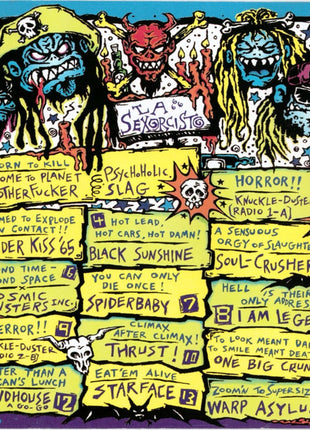 LA
SEXORCISTO
ORN TO KILL
OME TO PLANET
OTHERFUCKER
PSYCHOHOLIC
SLAG
HORROR!!
KNUCKLE-DUSTER
(RADIO 1-A)
MED TO EXPLODE
N CONTACT!!
DER KISS '65
4 HOT LEAD,
HOT CARS, HOT DAMN!
BLACK SUNSHINE
A SENSUOUS
ORGY OF SLAUGHTE
SOUL-CRUSHER
OND TIME-
OND SPACE
OSMIC
NSTERS INC.
YOU CAN ONLY
DIE ONCE!
SPIDERBABY 7
HELL IS THEIR
ONLY ADDRES
8 I AM LEGE
ERROR!! 9
KLE-DUSTER
ADIO 2-B)
CLIMAX
AFTER CLIMAX!
THRUST! 10
TO LOOK MEANT DEA
TO SMILE MEANT DE
ONE BIG CRUN
TER THAN A
CAN'S LUNCH
NDHOUSE 12
A GO-GO
EAT'EM ALIVE
STARFACE 13
ZOOM'N TO SUPERSIZ
WARP ASYLU